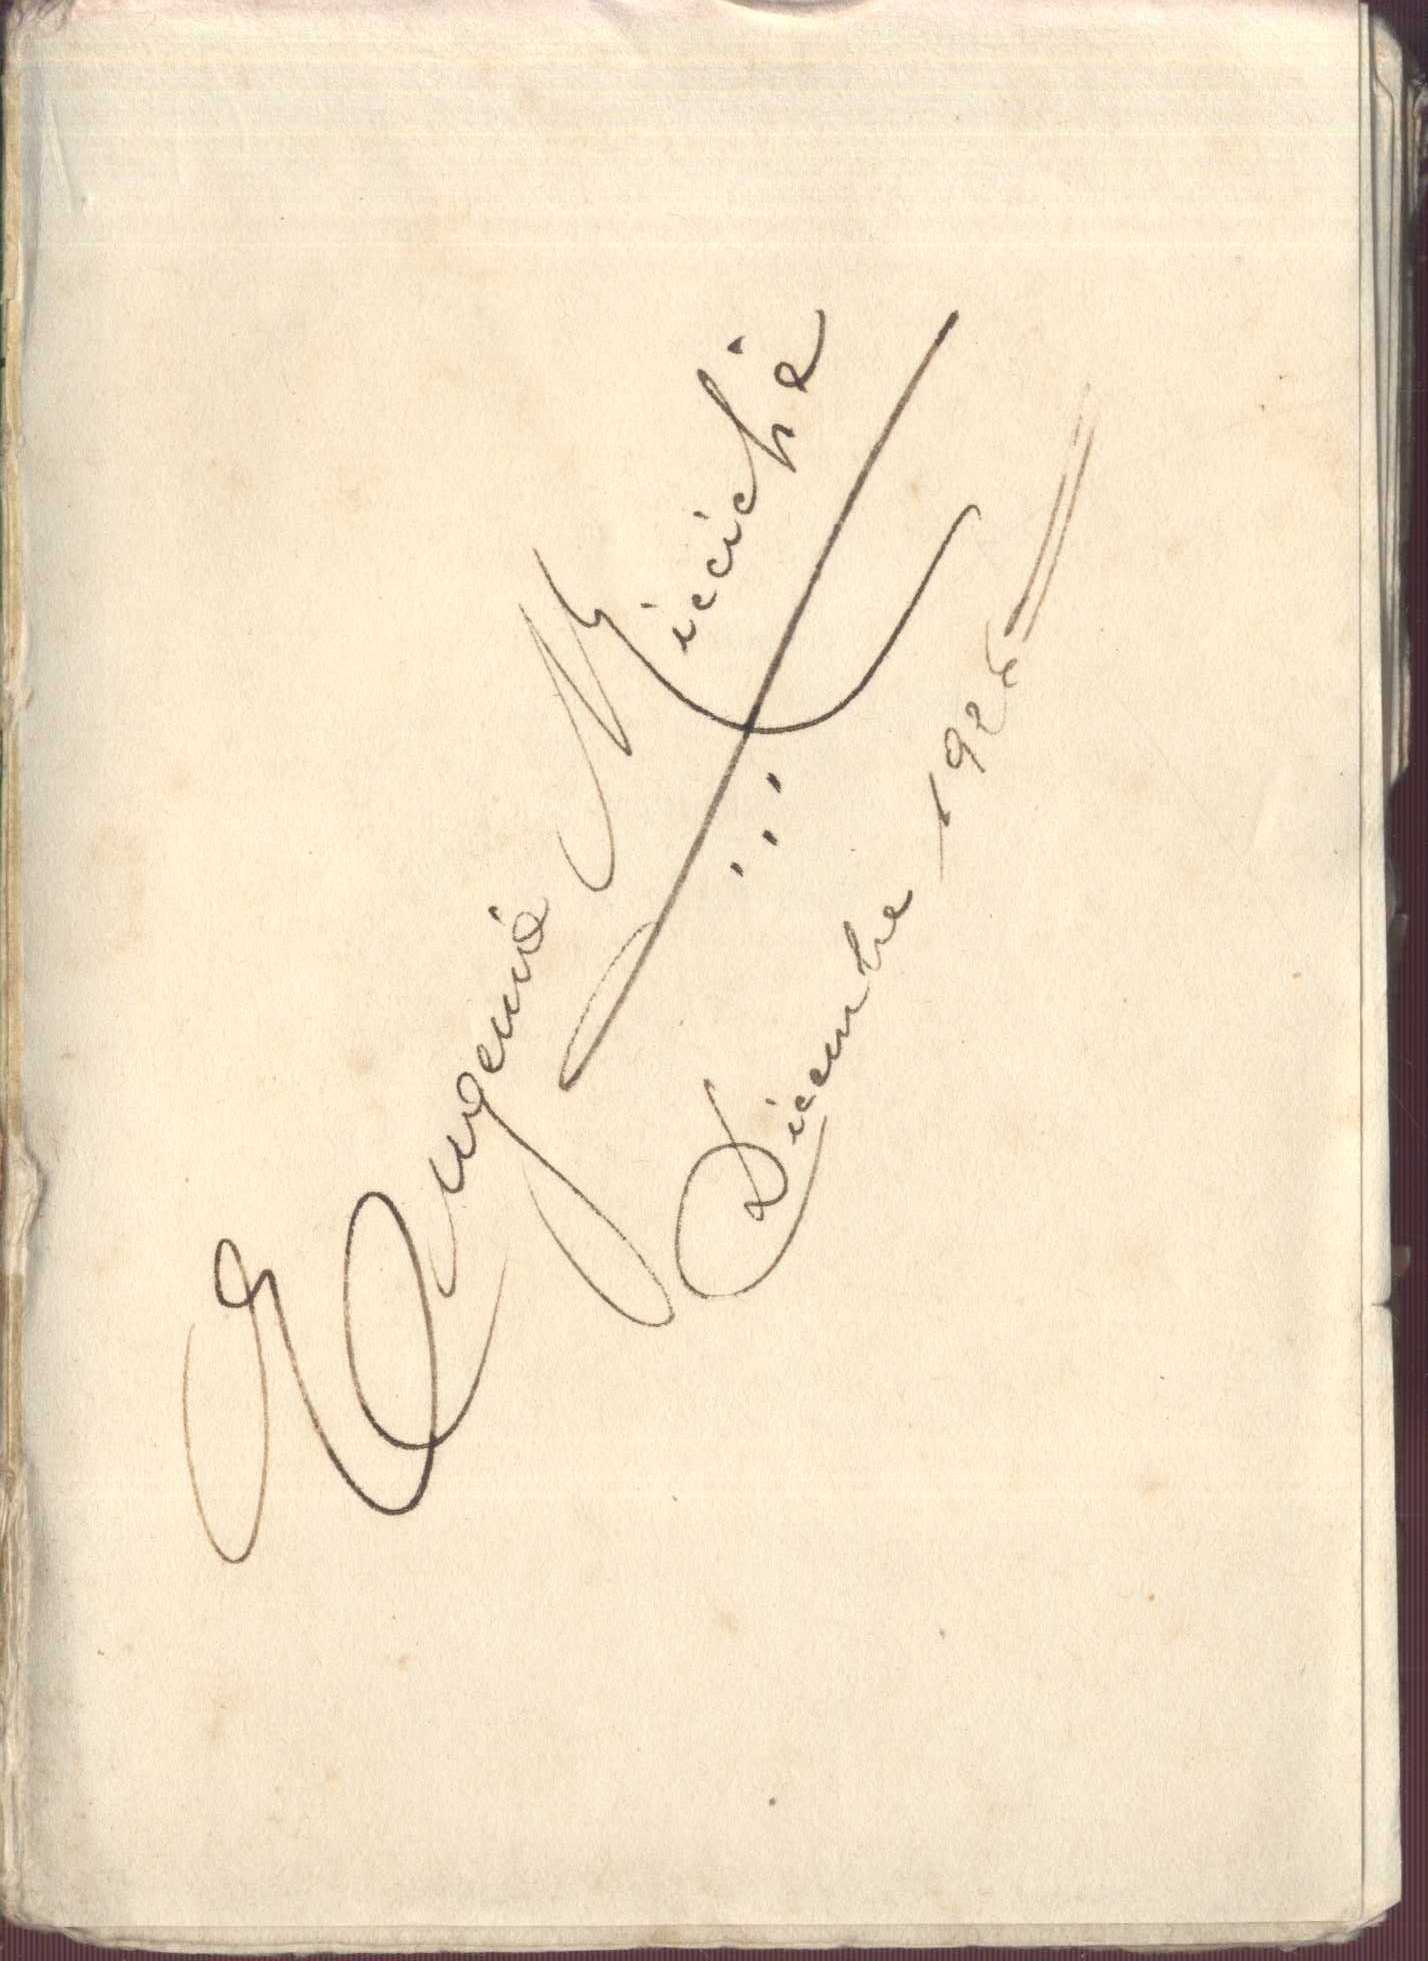 Eugenio Miccichè
Dicembre